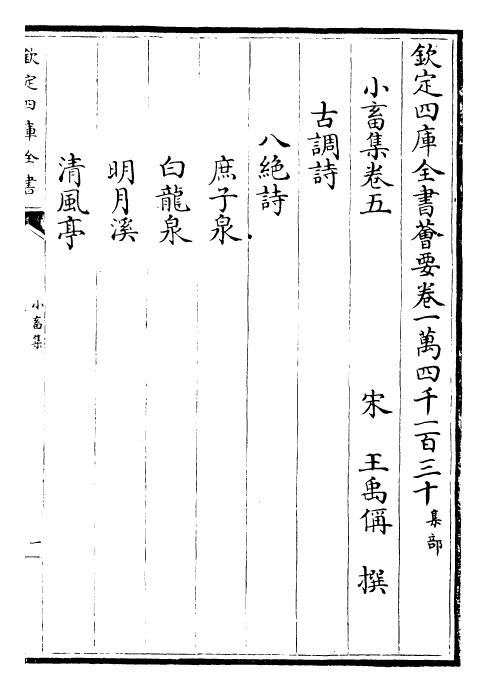 欽定四庫全書薈要卷一萬四千一百三十集部
小畜集卷五 宋 王禹偁 撰
古調詩
八絶詩
庶子泉
白龍泉
明月溪
清風亭
欽定四庫全書 小畜集 一